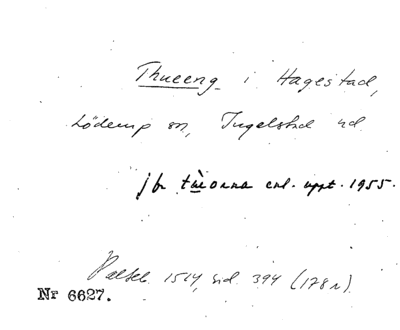 Thueeng i Hagestad,
Löderup sn, Ingelstad hd
jfr enl. uppt. 1955.
1514, sid. 394 (178 r).
Nr 6627.